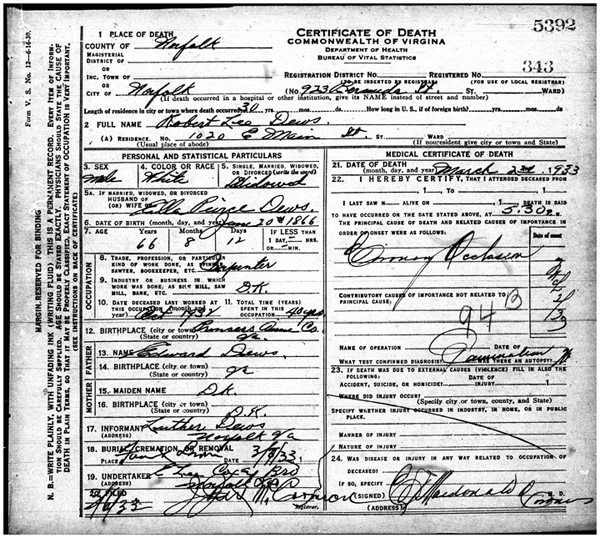 5392
CERTIFICATE OF DEATH
COMMONWEALTH OF VIRGINIA
DEPARTMENT OF HEALTH
BUREAU OF VITAL STATISTICS
1 PLACE OF DEATH
COUNTY OF Norfolk
MAGISTERIAL DISTRICT OF
OR
INC. TOWN OF
OR
CITY OF Norfolk
REGISTRATION DISTRICT NO.
(TO BE INSERTED BY REGISTRAR)
REGISTERED NO. 343
(FOR USE OF LOCAL REGISTRAR)
(NO. 923 St. ST. WARD)
(If death occurred in a hospital or other institution, give its NAME instead of street and number)
Length of residence in city or town where death occurred yrs. mos. ds. How long in U. S., if of foreign birth? yrs. mos. ds.
2 FULL NAME Robert Lee Dews
(A) RESIDENCE. No. 1020 E Main St. WARD
(Usual place of abode) (If nonresident give city or town and State)
PERSONAL AND STATISTICAL PARTICULARS
3. SEX Male
4. COLOR OR RACE White
5. SINGLE, MARRIED, WIDOWED OR DIVORCED (write the word) Widowed
5A. IF MARRIED, WIDOWED, OR DIVORCED HUSBAND OF (OR) WIFE OF Pierce Dews.
6. DATE OF BIRTH (month, day, and year) June 20th 1866
7. AGE Years 66 Months 8 Days 12 IF LESS THAN 1 DAY, HRS. OR MIN.
OCCUPATION
8. TRADE, PROFESSION, OR PARTICULAR KIND OF WORK DONE, AS SPINNER, SAWYER, BOOKKEEPER, ETC. Carpenter
9. INDUSTRY OR BUSINESS IN WHICH WORK WAS DONE, AS SILK MILL, SAW MILL, BANK, ETC. D.K.
10. DATE DECEASED LAST WORKED AT THIS OCCUPATION (month and year) Oct 1932
11. TOTAL TIME (YEARS) SPENT IN THIS OCCUPATION 40 yrs.
12. BIRTHPLACE (city or town) Princess Anne Co.
(State or country) Va.
FATHER
13. NAME Edward Dews.
14. BIRTHPLACE (city or town)
(State or country) Va
MOTHER
15. MAIDEN NAME D.K.
16. BIRTHPLACE (city or town)
(State or country) D.K.
17. INFORMANT Luther Dews
(ADDRESS) Norfolk Va
18. BURIAL, CREMATION, OR REMOVAL
PLACE
19. UNDERTAKER Cox Bro
(ADDRESS) Norfolk Va
20. FILED
MEDICAL CERTIFICATE OF DEATH
21. DATE OF DEATH (month, day, and year) March 2nd 1933
22. I HEREBY CERTIFY, THAT I ATTENDED DECEASED FROM
TO
I LAST SAW H ALIVE ON DEATH IS SAID
TO HAVE OCCURRED ON THE DATE STATED ABOVE, AT 5.30 p.
THE PRINCIPAL CAUSE OF DEATH AND RELATED CAUSES OF IMPORTANCE IN ORDER OF ONSET WERE AS FOLLOWS:
Date of onset
Coronary Occlusion
CONTRIBUTORY CAUSES OF IMPORTANCE NOT RELATED TO PRINCIPAL CAUSE:
94 B
NAME OF OPERATION DATE OF
WHAT TEST CONFIRMED DIAGNOSIS? Examination WAS THERE AN AUTOPSY? No
23. IF DEATH WAS DUE TO EXTERNAL CAUSES (VIOLENCE) FILL IN ALSO THE FOLLOWING:
ACCIDENT, SUICIDE, OR HOMICIDE? DATE OF INJURY
WHERE DID INJURY OCCUR?
(Specify city or town, county, and State)
SPECIFY WHETHER INJURY OCCURRED IN INDUSTRY, IN HOME, OR IN PUBLIC PLACE.
MANNER OF INJURY
NATURE OF INJURY
24. WAS DISEASE OR INJURY IN ANY WAY RELATED TO OCCUPATION OF DECEASED?
IF SO, SPECIFY
(SIGNED) Macdonald M. D.
(ADDRESS) Coroner
Form V. S. No. 12
MARGIN RESERVED FOR BINDING
N. B.—WRITE PLAINLY, WITH UNFADING INK (WRITING FLUID) THIS IS A PERMANENT RECORD. EVERY ITEM OF INFORMATION SHOULD BE CAREFULLY SUPPLIED. AGE SHOULD BE STATED EXACTLY. PHYSICIANS SHOULD STATE THE CAUSE OF DEATH IN PLAIN TERMS, SO THAT IT MAY BE PROPERLY CLASSIFIED, EXACT STATEMENT OF OCCUPATION IS VERY IMPORTANT.
(SEE INSTRUCTIONS ON BACK OF CERTIFICATE)